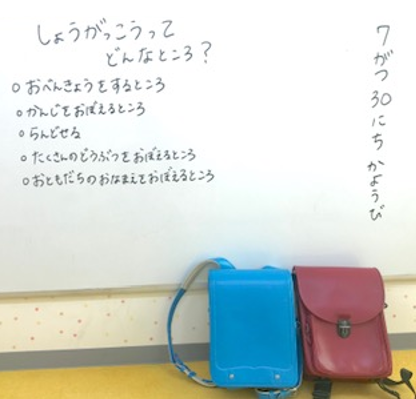 しょうがっこうって
どんなところ？
○おべんきょうをするところ
○かんじをおぼえるところ
○らんどせる
○たくさんのどうぶつをおぼえるところ
○おともだちのおなまえをおぼえるところ
7がつ30にちかようび